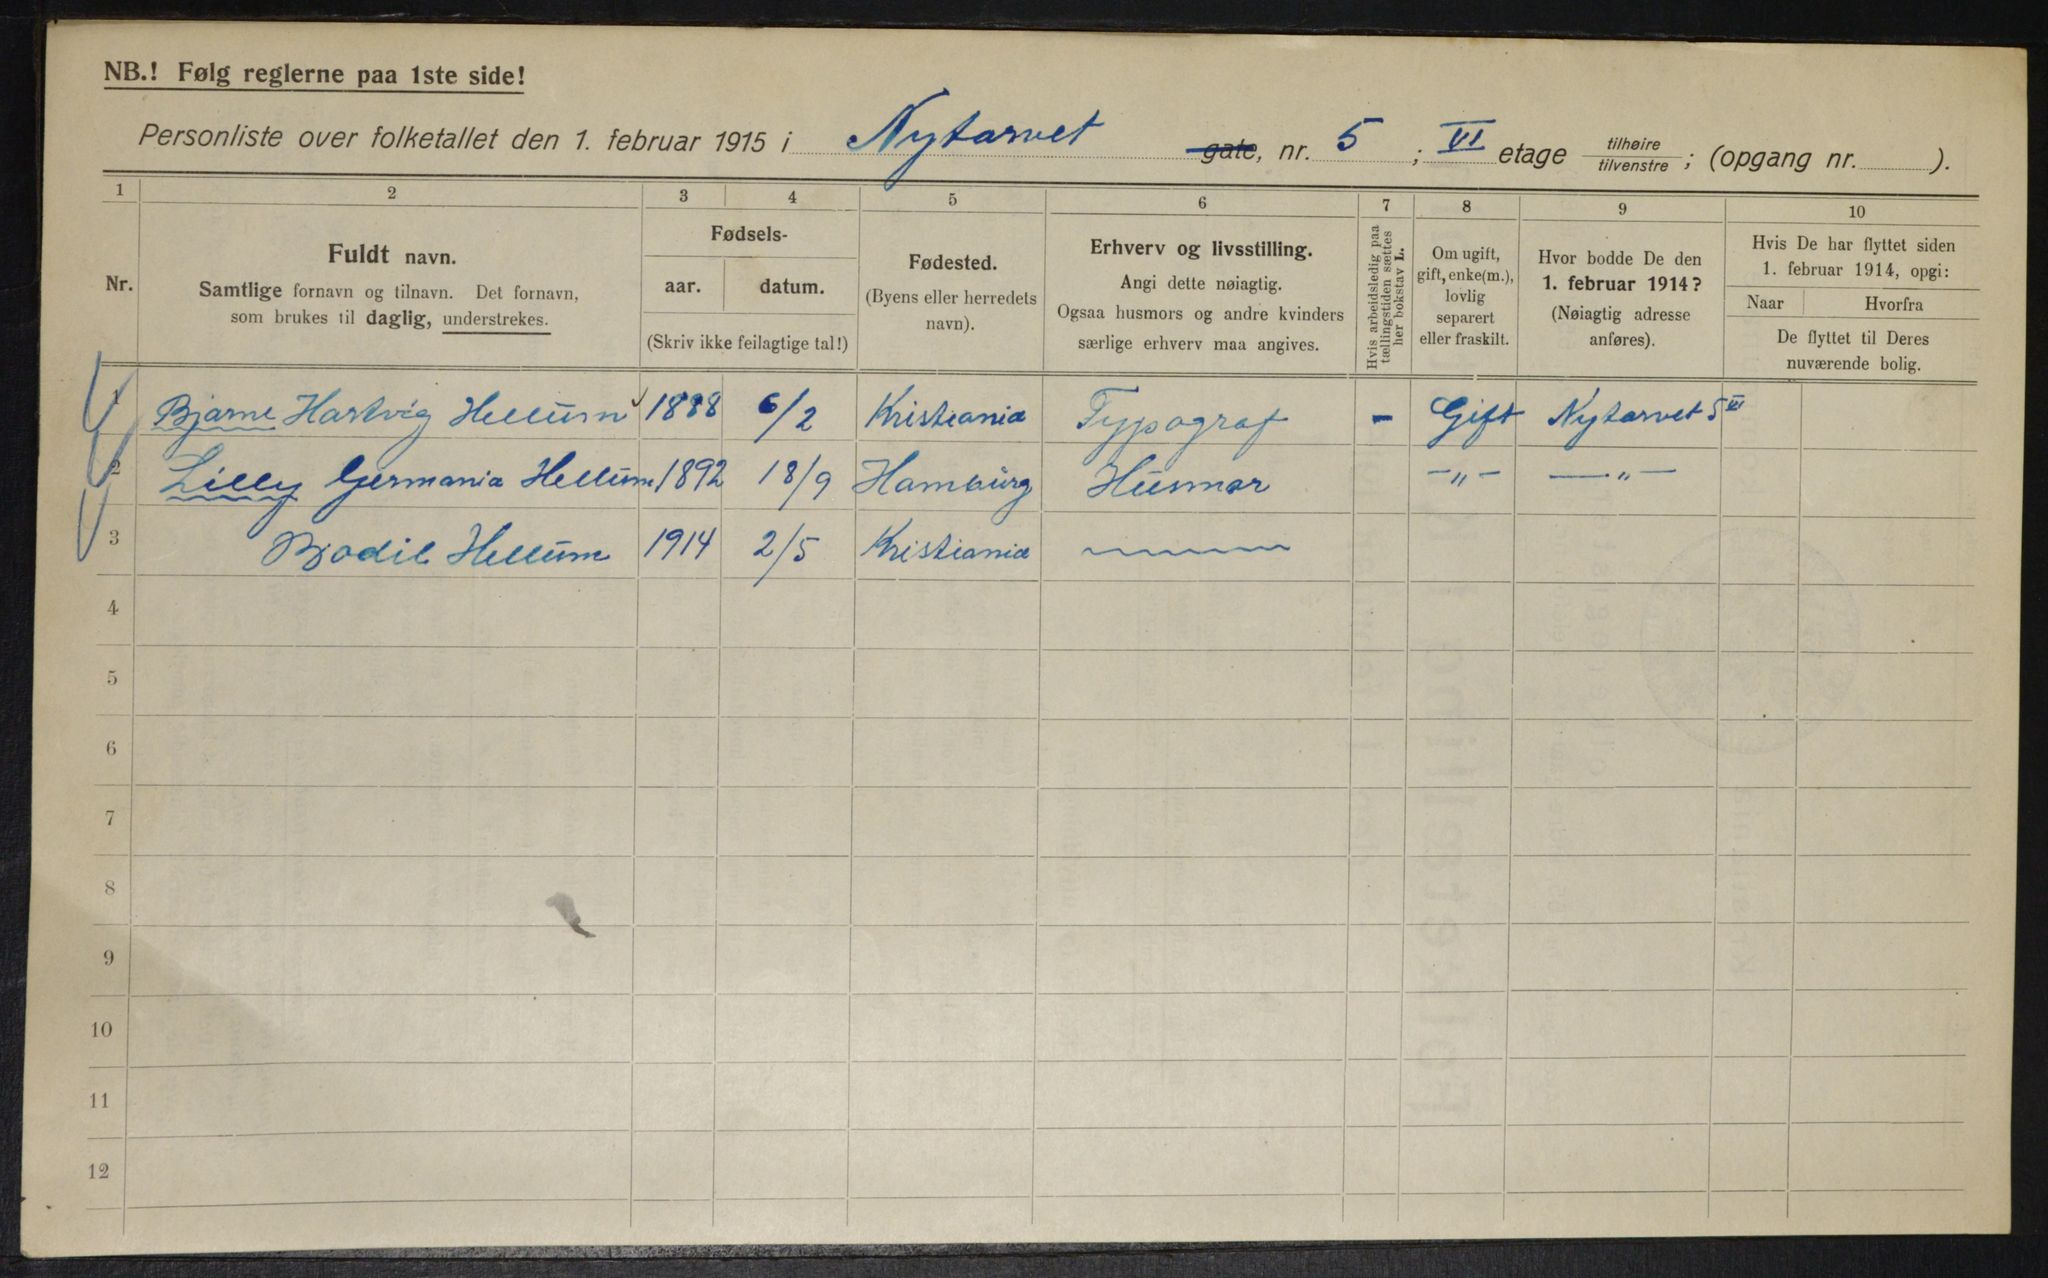 NB.! Følg reglerne paa 1ste side!
Personliste over folketallet den 1. februar 1915 i Nytorvet gate, nr. 5 ; VI etage tilhøire tilvenstre ; (opgang nr. ).
1 2 3 4 5 6 7 8 9 10
Nr.
Fuldt navn.
Samtlige fornavn og tilnavn. Det fornavn,
som brukes til daglig, understrekes.
Fødsels-
aar. datum.
(Skriv ikke feilagtige tal!)
Fødested.
(Byens eller herredets
navn).
Erhverv og livsstilling.
Angi dette nøiagtig.
Ogsaa husmors og andre kvinders
særlige erhverv maa angives.
Hvis arbeidsledig paa
tællingstiden sættes
her bokstav L.
Om ugift,
gift, enke(m.),
lovlig
separert
eller fraskilt.
Hvor bodde De den
1. februar 1914?
(Nøiagtig adresse
anføres).
Hvis De har flyttet siden
1. februar 1914, opgi:
Naar Hvorfra
De flyttet til Deres
nuværende bolig.
1 Bjarne Hartvig Hellum 1888 6/2 Kristiania Typograf - Gift Nytorvet 5 VI
2 Lilly Germania Hellum 1892 18/9 Hamburg Husmor -"- -"-
3 Bjodil Hellum 1914 2/5 Kristiania
4
5
6
7
8
9
10
11
12